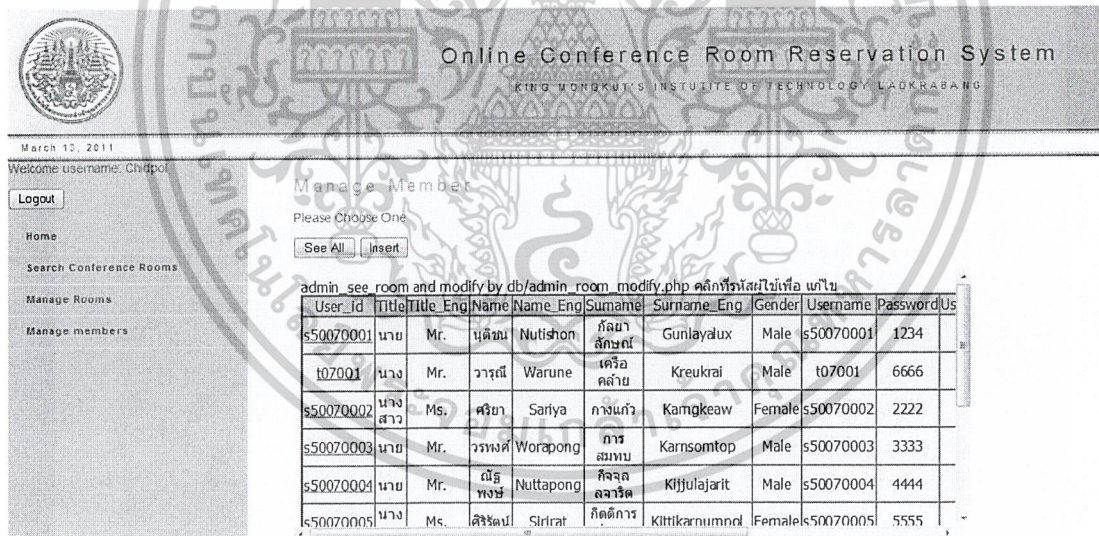 Online Conference Room Reservation System
KING MONGKUT'S INSTUTITE OF TECHNOLOGY LADKRABANG
March 13, 2011
Welcome username: Chidpol
Logout
Home
Search Conference Rooms
Manage Rooms
Manage members
Manage Member
Please Choose One
See All Insert
admin_see_room and modify by db/admin_room_modify.php คลิกที่รหัสผู้ใช้เพื่อ แก้ไข
User_id Title Title_Eng Name Name_Eng Surname Surname_Eng Gender Username Password Us
s50070001 นาย Mr. นุติชน Nutishon กัลยาลักษณ์ Gunlayalux Male s50070001 1234
t07001 นาง Mr. วารุณี Warune เครือคล้าย Kreukrai Male t07001 6666
s50070002 นางสาว Ms. ศริยา Sariya กางแก้ว Karngkeaw Female s50070002 2222
s50070003 นาย Mr. วรพงศ์ Worapong การสมทบ Karnsomtop Male s50070003 3333
s50070004 นาย Mr. ณัฐพงษ์ Nuttapong กิจจุลลจาริต Kijjulajarit Male s50070004 4444
s50070005 นาง Ms. ศิริรัตน์ Sirirat กิตติการ Kittikarnumpol Female s50070005 5555